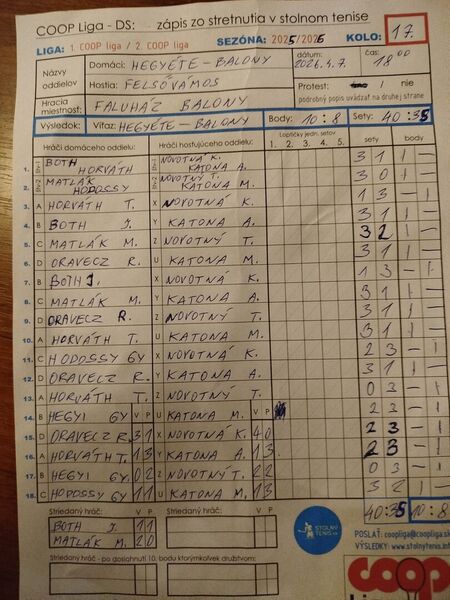 COOP Liga - DS: zápis zo stretnutia v stolnom tenise
LIGA: 1. COOP liga / 2. COOP liga SEZÓNA: 2025/2026 KOLO: 17.
Názvy oddielov Domáci: HEGYÉTE - BALONY dátum: 2026.4.7. čas: 18 00
Hostia: FELSŐVÁMOS Protest: / nie
Hracia miestnosť: FALUHÁZ BALONY podrobný popis uvádzať na druhej strane
Výsledok: Víťaz: HEGYÉTE - BALONY Body: 10:8 Sety: 40:35
Hráči domáceho oddielu: Hráči hosťujúceho oddielu: Loptičky jedn. setov sety body
1. 2. 3. 4. 5.
1. BOTH HORVÁTH NOVOTNÁ K. KATONA A. 3 1 1 -
2. MATLÁK HODOSSY NOVOTNÝ T. KATONA M. 3 0 1 -
3. A HORVÁTH T. X NOVOTNÁ K. 1 3 - 1
4. B BOTH J. Y KATONA A. 3 1 1 -
5. C MATLÁK M. Z NOVOTNÝ T. 3 2 1 -
6. D ORAVECZ R. U KATONA M. 3 1 1 -
7. B BOTH J. X NOVOTNÁ K. 1 3 - 1
8. C MATLÁK M. Y KATONA A. 3 1 1 -
9. D ORAVECZ R. Z NOVOTNÝ T. 3 1 1 -
10. A HORVÁTH T. U KATONA M. 3 1 1 -
11. C HODOSSY GY X NOVOTNÁ K. 2 3 - 1
12. D ORAVECZ R. Y KATONA A. 3 1 1 -
13. A HORVÁTH T. Z NOVOTNÝ T. 0 3 - 1
14. B HEGYI GY V P U KATONA M. V P 2 3 - 1
15. D ORAVECZ R. 3 1 X NOVOTNÁ K. 4 0 2 3 - 1
16. A HORVÁTH T. 1 3 Y KATONA A. 1 3 2 3 - 1
17. B HEGYI GY. 0 2 Z NOVOTNÝ T. 2 2 0 3 - 1
18. C HODOSSY GY 1 1 U KATONA M. 1 3 3 2 1 -
Striedaný hráč: V P Striedaný hráč: V P 40:35 10:8
BOTH J. 1 1
MATLÁK M. 2 0
STOLNÝ TENIS
POSLAŤ: coopliga@coopliga.sk
VÝSLEDKY: www.stolnytenis.inf
Striedaný hráč - po dosiahnutí 10. bodu ktorýmkoľvek družstvom:
coop